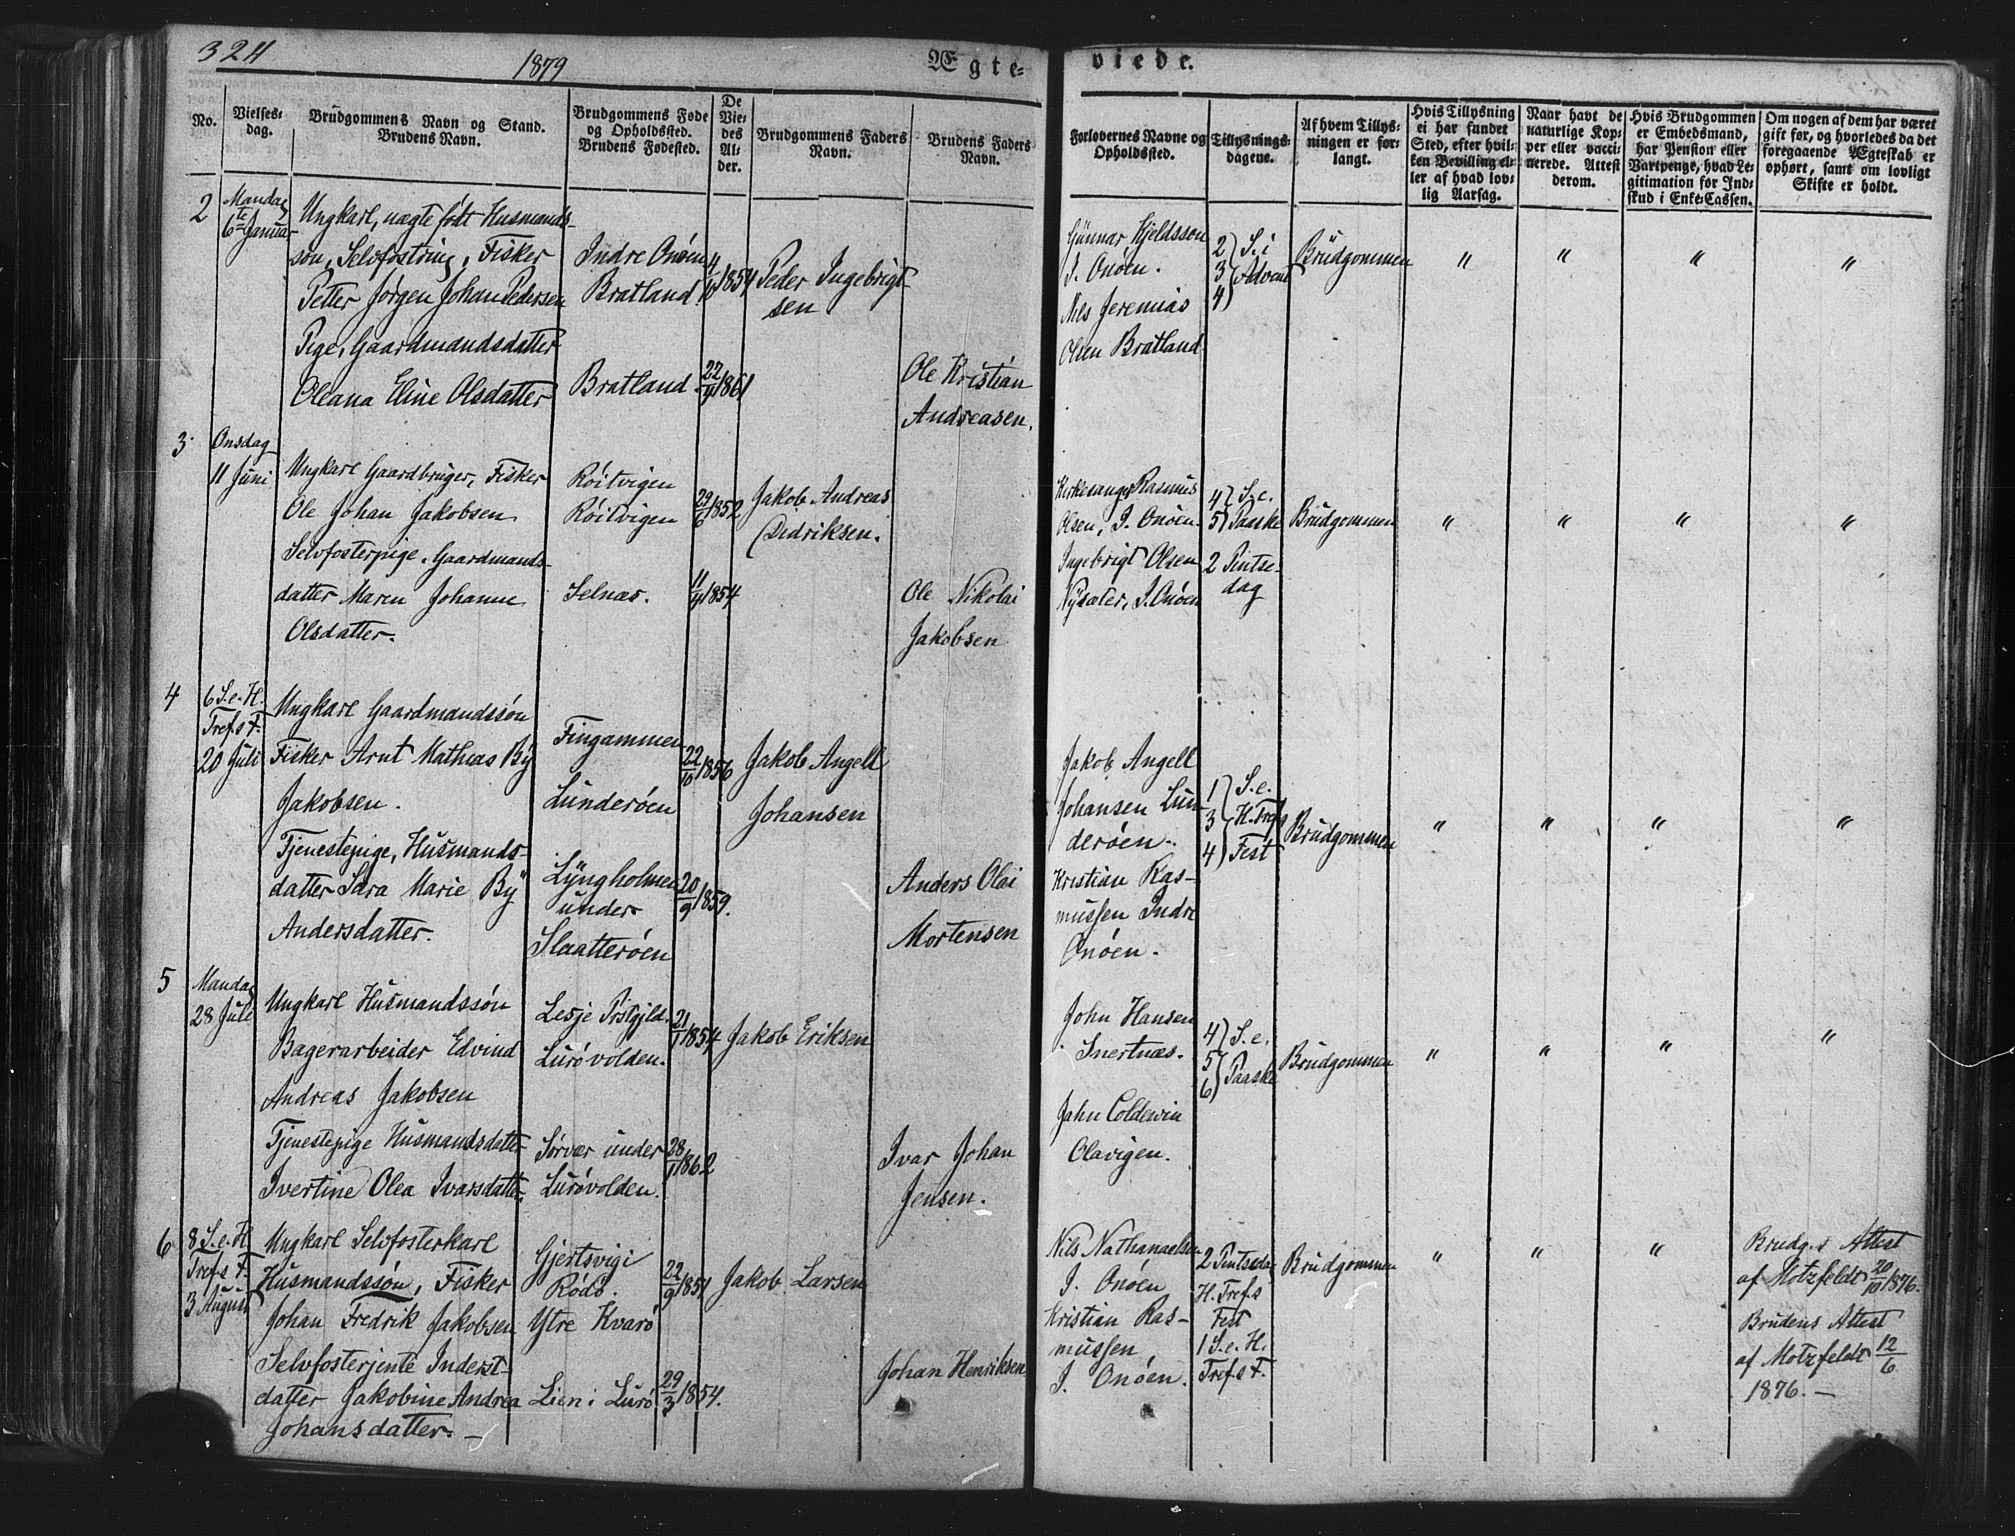 324
1879
Ægte-
viede.
No.
Vielses-
dag.
Brudgommens Navn og Stand.
Brudens Navn.
Brudgommens Føde
og Opholdssted.
Brudens Fødested.
De
Vie-
des
Al-
der.
Brudgommens Faders
Navn.
Brudens Faders
Navn.
Forlovernes Navne og
Opholdssted.
Tillysnings-
dagene.
Af hvem Tillys-
ningen er for-
langt.
Hvis Tillysning
ei har fundet
Sted, efter hvil-
ken Bevilling el-
ler af hvad lov-
lig Aarsag.
Naar havt de
naturlige Kop-
per eller vacci-
nerede. Attest
derom.
Hvis Brudgommen
er Embedsmand,
har Pension eller
Vartpenge, hvad Le-
gitimation for Ind-
skud i Enke-Cassen.
Om nogen af dem har været
gift før, og hvorledes da det
foregaaende Ægteskab er
ophørt, samt om lovligt
Skifte er holdt.
2
Mandag
6te Januar
Ungkarl, uægte født Husmands-
søn, Selvfostring, Fisker
Petter Jørgen Johan Pedersen
Pige, Gaardmandsdatter
Oleana Eline Olsdatter
Indre Onøen
Bratland
Bratland
4/10 1854
22/9 1861
Peder Ingebrigt-
sen
Ole Kristian
Andreasen.
Gunnar Kjeldsson
I. Onøen.
Nils Jeremias
Olsen Bratland
2
3
4
S. i
Advent
Brudgommen
" " " "
3
Onsdag
11 Juni
Ungkarl Gaardbruger, Fisker
Ole Johan Jakobsen
Selvfosterpige, Gaardmands-
datter Maren Johanne
Olsdatter.
Røitvigen
Røitvigen
Selnæs.
29/6 1852
11/9 1854
Jakob Andreas
Didriksen.
Ole Nikolai
Jakobsen
Kirkesanger Rasmus
Olsen, I. Onøen.
Ingebrigt Olsen
Nysæter, I. Onøen
4
5
S. e.
Paaske
2 Pintse-
dag
Brudgommen
" " " "
4
6 S. e. H.
Tref.s F.
20 Juli
Ungkarl Gaardmandssøn
Fisker Arnt Mathias By
Jakobsen.
Tjenestepige, Husmands-
datter Sara Marie By
Andersdatter.
Fingammen
Lunderøen
Lyngholmen
under
Slaatterøen
22/10 1856
20/9 1859.
Jakob Angell
Johansen
Anders Olai
Mortensen
Jakob Angell
Johansen Lun-
derøen.
Kristian Ras-
mussen Indre
Onøen.
1
3
4
S. e.
H. Tref.s
Fest
Brudgommen
" " " "
5
Mandag
28 Juli
Ungkarl Husmandssøn
Bagerarbeider Edvind
Andreas Jakobsen
Tjenestepige Husmandsdatter
Ivertine Olea Ivarsdatter.
Lesje Prstgjld.
Lurøvolden.
Sørvær under
Lurøvolden.
21/1 1854
28/1 1862
Jakob Eriksen
Ivar Johan
Jensen.
John Hansen
Snertnæs.
Jahn Coldewin
Olavigen.
4
5
6
S. e.
Paaske
Brudgommen
" " " "
6
8 S. e. H.
Tref.s F.
3 August
Ungkarl Selvfosterkarl
Husmandssøn, Fisker
Johan Fredrik Jakobsen
Selvfosterjente Inderst-
datter Jakobine Andrea
Johansdatter. —
Gjertsvigi
Rødø.
Ytre Kvarø
Lien i Lurø
22/9 1851
29/3 1854.
Jakob Larsen
Johan Henriksen
Nils Nathanaelsen
I. Onøen
Kristian Ras-
mussen
I. Onøen.
2 Pintsedag
H. Tref.s
Fest
1 S. e. H.
Tref.s F.
Brudgommen
" " "
Brudg.s Attest
af Motzfeldt 20/10 1876.
Brudens Attest
af Motzfeldt 12/6
1876. —